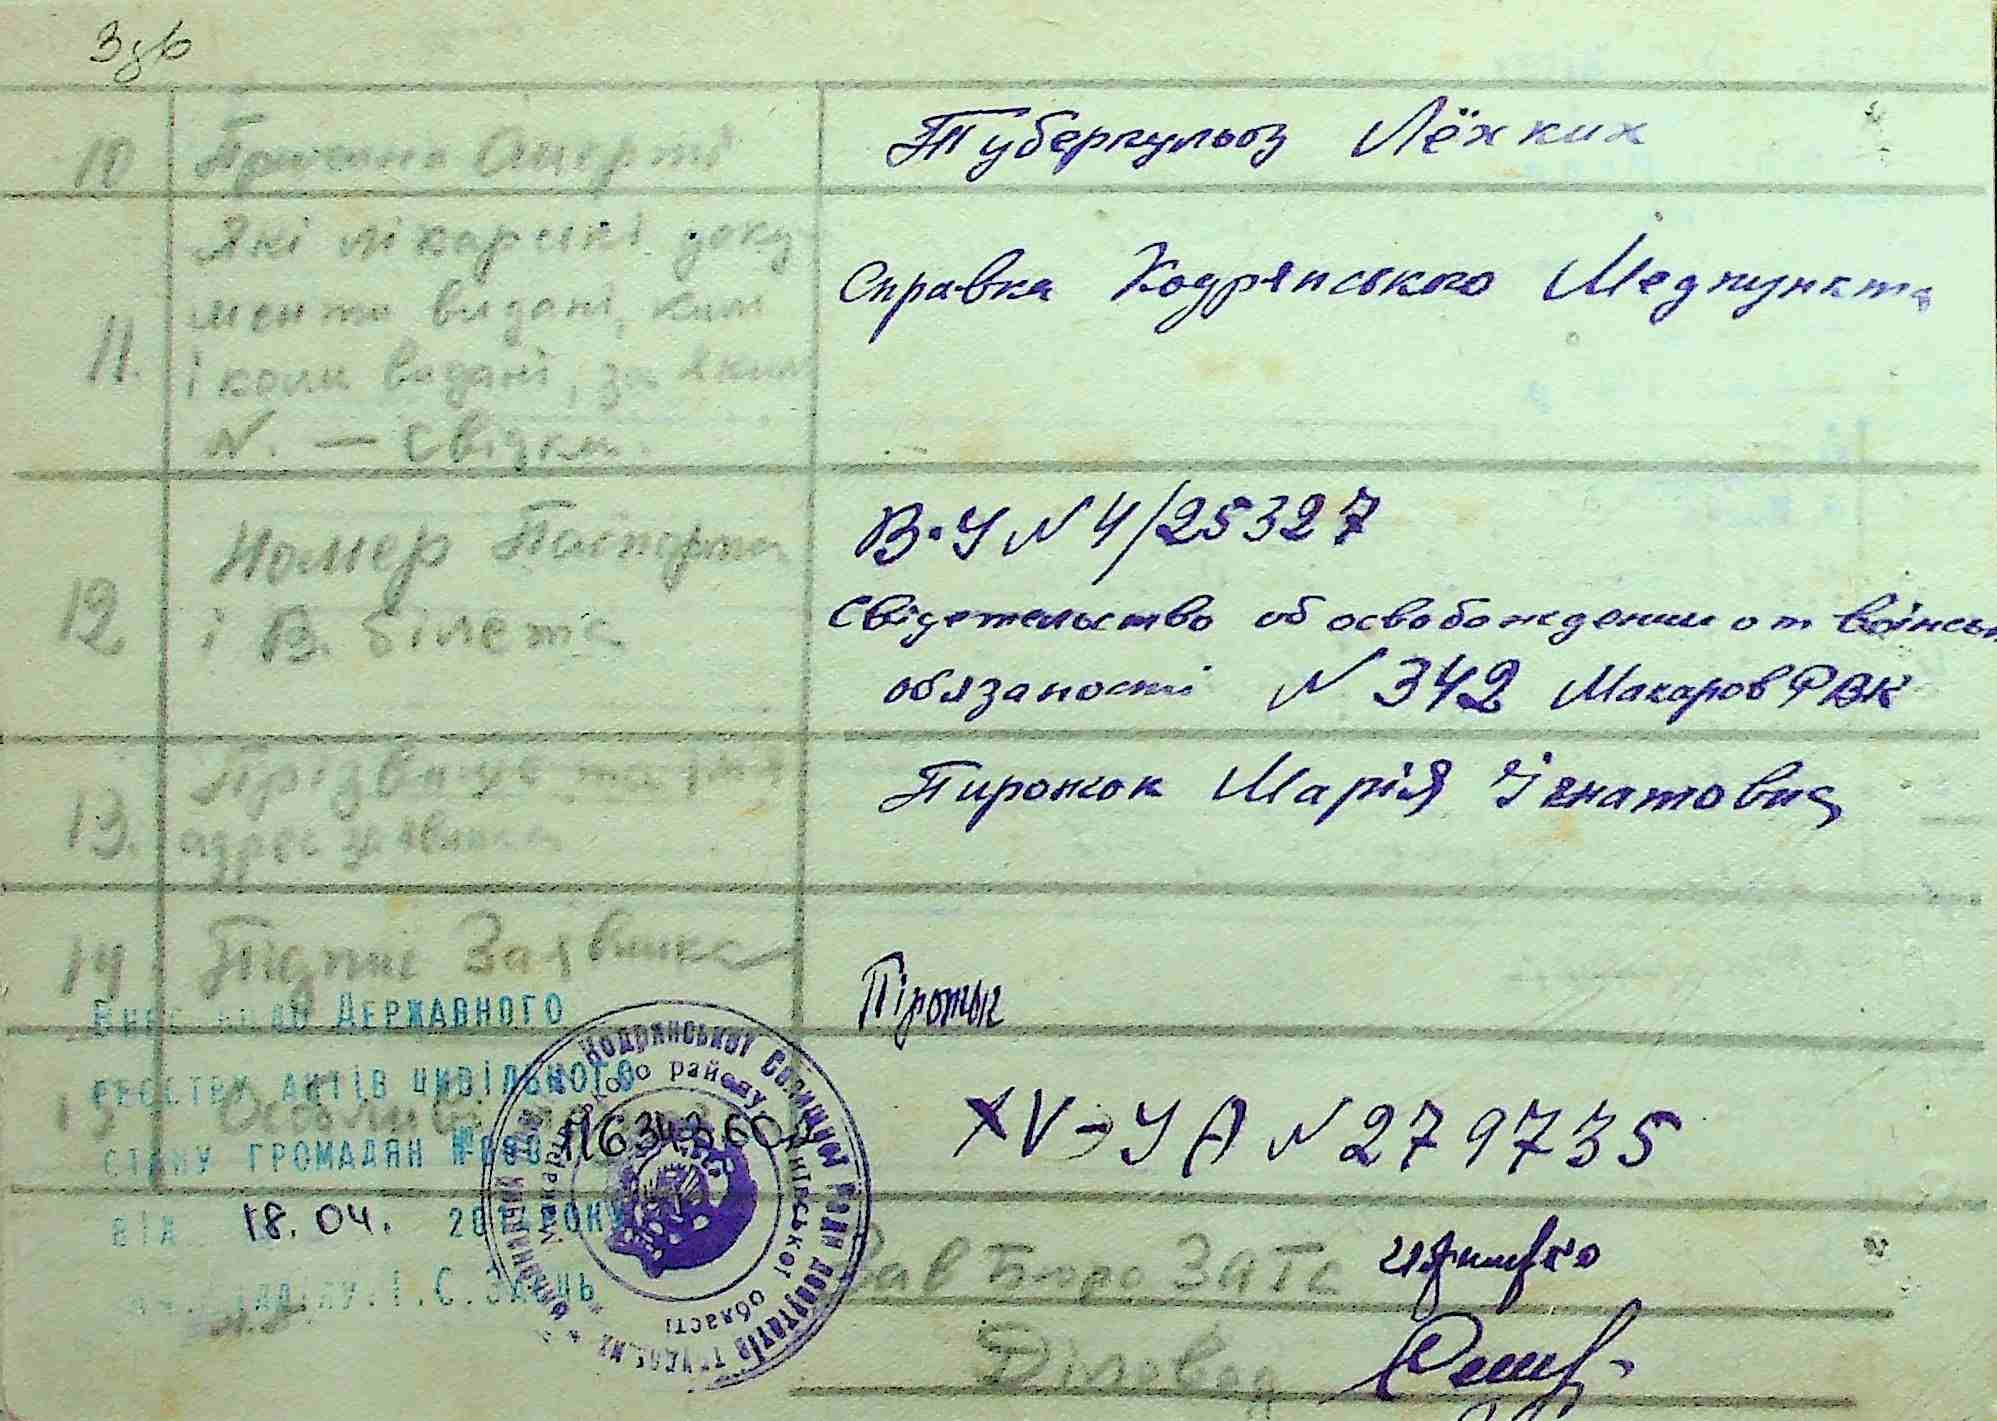 10 Причина Смерті
Туберкульоз Лёхких
11. Які лікарські доку
менти видані, ким
і коли видані, за яким
N. — Свідки.
Справка Кодрянського Медпункта
12. Номер Паспорта
і В. білета
В-У N 4/25327
Свідетельство об освобождении от воінськ
обязаності N 342 Макаров РВК
13. Прізвище та імя
адрес заявника
Пирожок Марія Ігнатовна
14 Підпис Заявника
Пірожок
15 Особливі
XV-УА N 279735
Внесено до Державного
реєстру актів цивільного
стану громадян №000 11634360
від 18.04. 20 року
відділу І.С.Заєць
Кодрянської Селищної Ради депутатів трудящих
району Київської області
Зав Бюро ЗАГС
Діловод